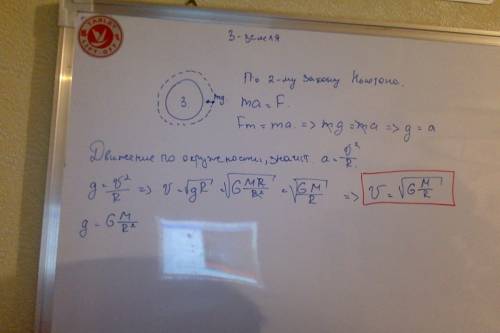 3-земля
По 2-му закону Ньютона.
3
mg
ma = F.
Fт = ma. => mg = ma => g = a
Движение по окружности, значит a = v²/R.
g = v²/R => v = √gR = √G MR/R² = √G M/R => v = √G M/R
g = G M/R²